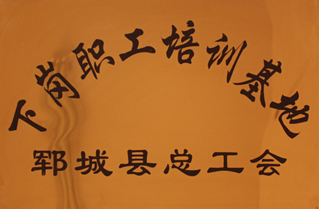 下岗职工培训基地
郓城县总工会